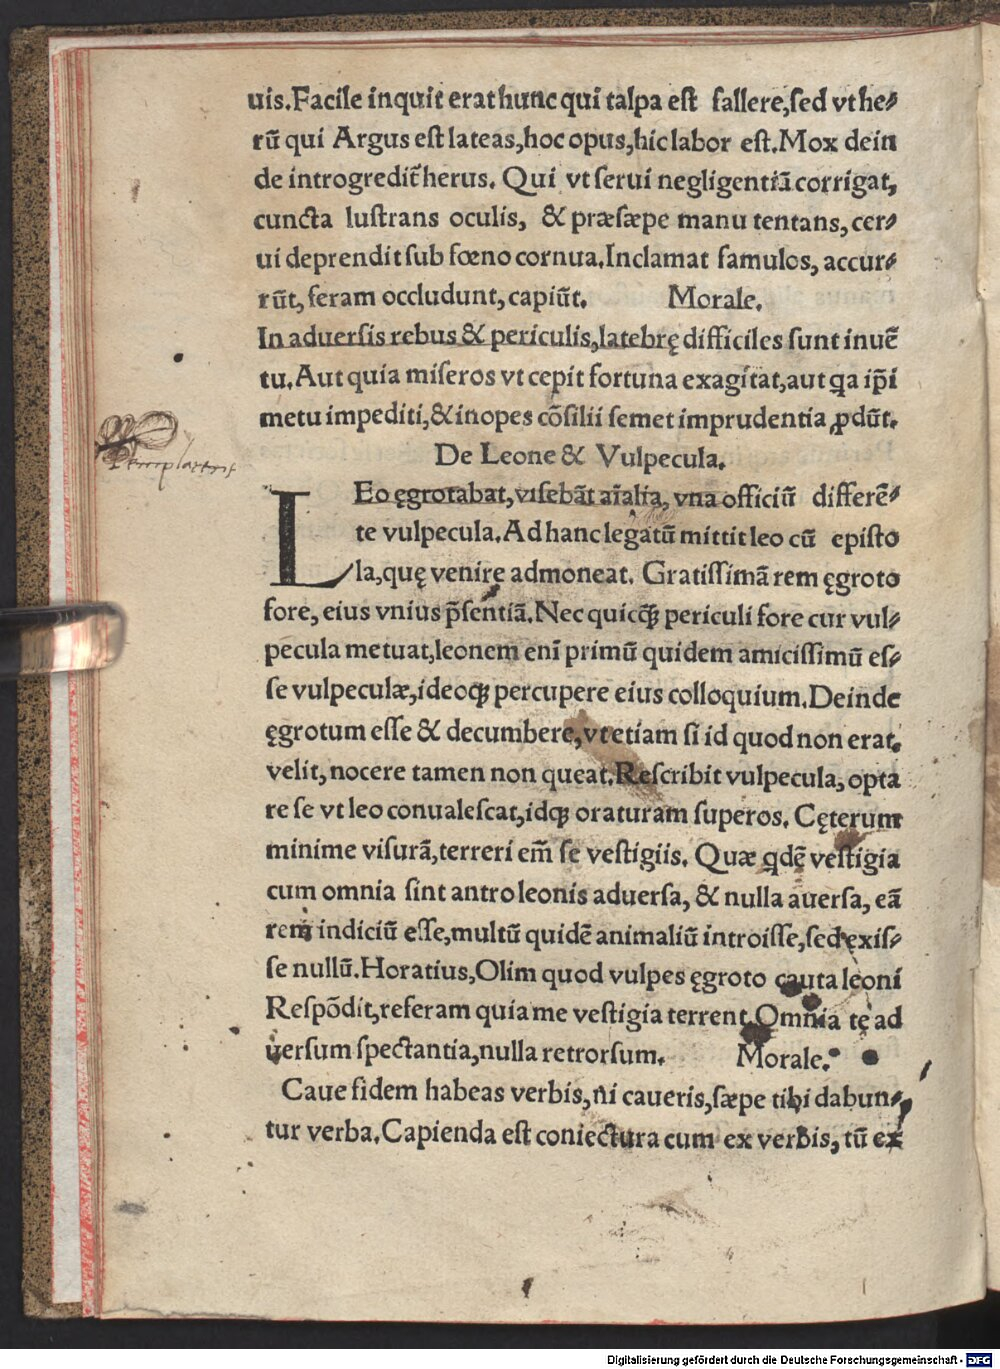 uis.Facile inquit erat hunc qui talpa est fallere,sed vt he⸗
rū qui Argus est lateas,hoc opus,hic labor est.Mox dein
de introgredit̄ herus. Qui vt serui negligentiā corrigat,
cuncta lustrans oculis, & præsæpe manu tentans, cer⸗
ui deprendit sub fœno cornua.Inclamat famulos, accur⸗
rūt, feram occludunt, capiūt. Morale.
In aduersis rebus & periculis,latebrę difficiles sunt inuē
tu.Aut quia miseros vt cepit fortuna exagitat,aut q̄a ip̄i
metu impediti,& inopes cōsilii semet imprudentia ꝓdūt.
De Leone & Vulpecula.
LEo ęgrotabat, visebāt aīalia, vna officiū differē⸗
te vulpecula.Ad hanc legatū mittit leo cū episto
la,quę venire admoneat. Gratissimā rem ęgroto
fore, eius vnius p̄sentiā.Nec quicq̄ꝫ periculi fore cur vul⸗
pecula metuat,leonem enī primū quidem amicissimū es⸗
se vulpeculæ,ideoqꝫ percupere eius colloquium.Deinde
ęgrotum esse & decumbere,vt etiam si id quod non erat.
velit, nocere tamen non queat.Rescribit vulpecula, opta
re se vt leo conualescat,idqꝫ oraturam superos. Cęterum
minime visurā,terreri em̄ se vestigiis. Quæ qdē vestigia
cum omnia sint antro leonis aduersa, & nulla auersa, eā
rem indiciū esse,multū quidē animaliū introisse,sed exis⸗
se nullū.Horatius,Olim quod vulpes ęgroto cauta leoni
Respōdit,referam quia me vestigia terrent.Omnia te ad
uersum spectantia,nulla retrorsum. Morale.
Caue fidem habeas verbis,ni caueris,sæpe tibi dabun⸗
tur verba.Capienda est coniectura cum ex verbis, tū ex
Digitalisierung gefördert durch die Deutsche Forschungsgemeinschaft - DFG